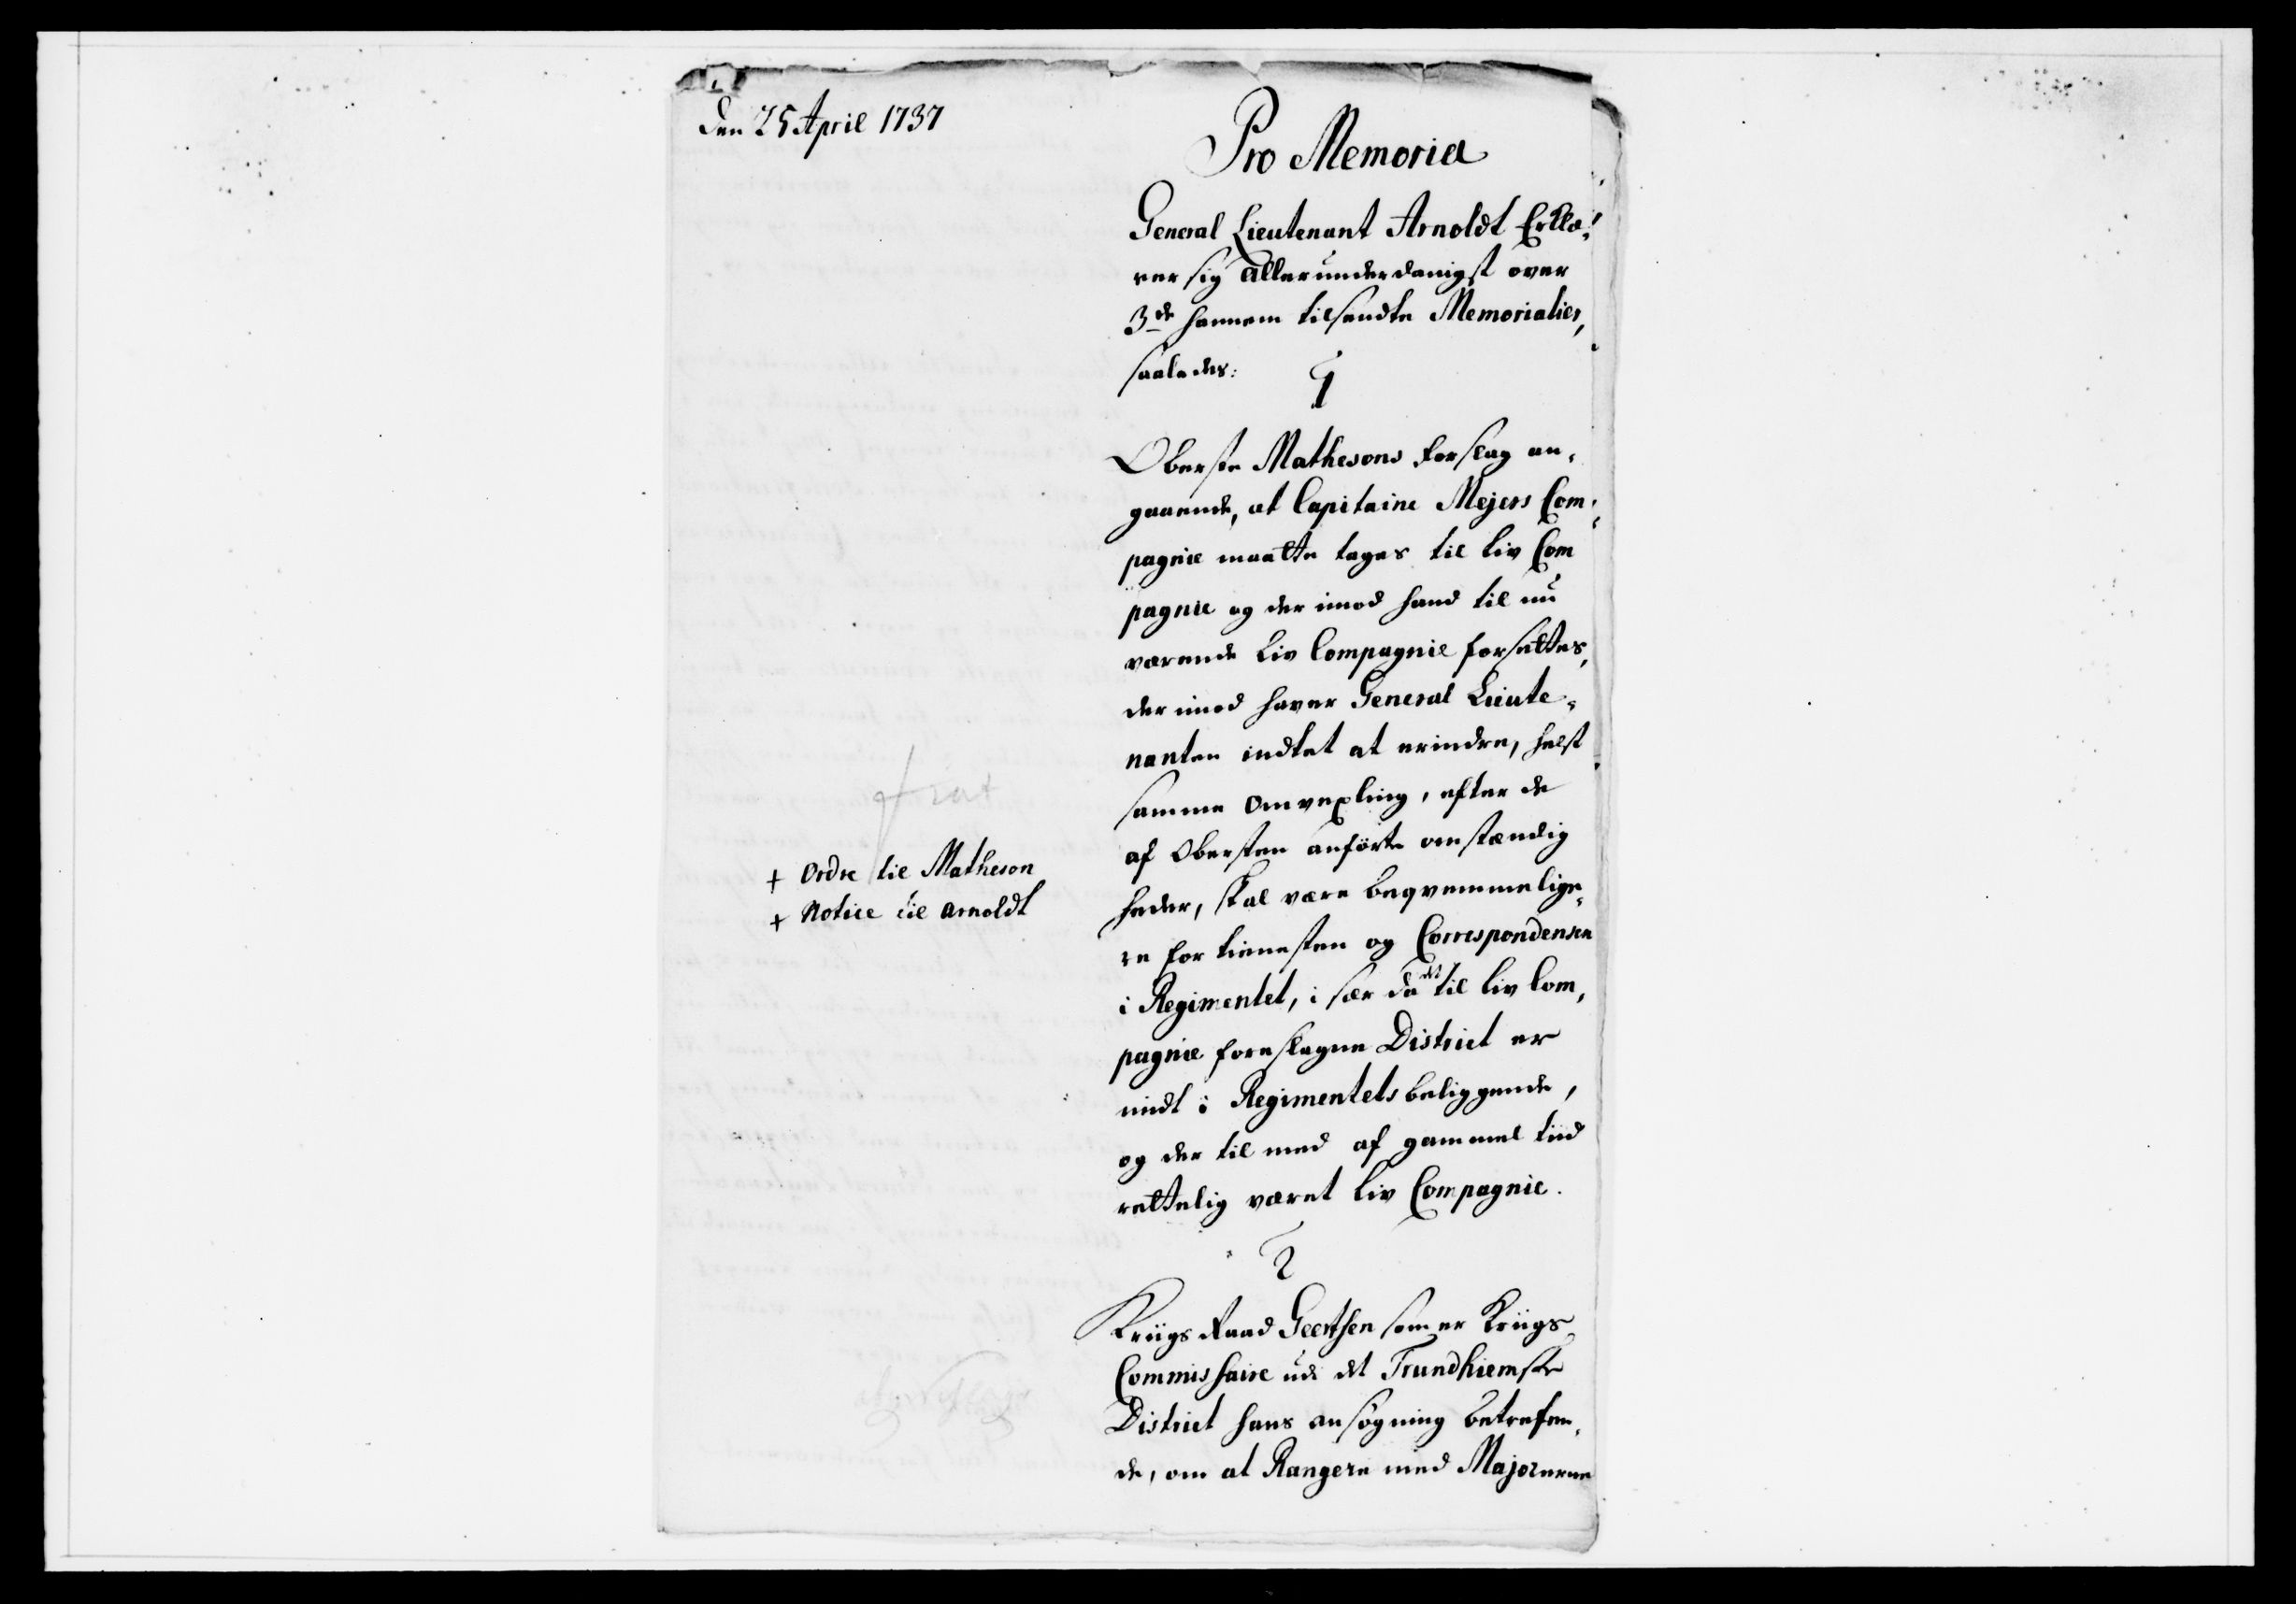 den 25 April 1737
Pro Memoria
General Lieutenant Arnoldt Erklæ-
rer sig allerunderdanigst over
3de hannem tilsendte Memorialier,
saaledes:
1
Oberste Mathesons forslag an-
gaaende, at Capitaine Mejers Com-
pagnie maatte tages til Liv Com
pagnie og der imod hand til nu
værende Liv Compagnie forsættes,
der imod haver General Lieute-
nanten indtet at erindre, helst
samme omvexling, efter de
af Obersten anførte omstændig
heder, skal være beqvemmelige-
re for tienesten og Correspondensen
i Regimentet, i sær da det til Liv Com-
pagnie foreslagne District er
midt i Regimentets beliggende,
og der til med af gammel tiid
rettelig været Liv Compagnie.
fiat
+ Ordre til Matheson
+ Notice til Arnoldt
2
Kriigs Raad Geertsen som er Kriigs
Commissaire udi det Trundhiemske
District hans ansøgning betreffen-
de, om at Rangere med Majorerne